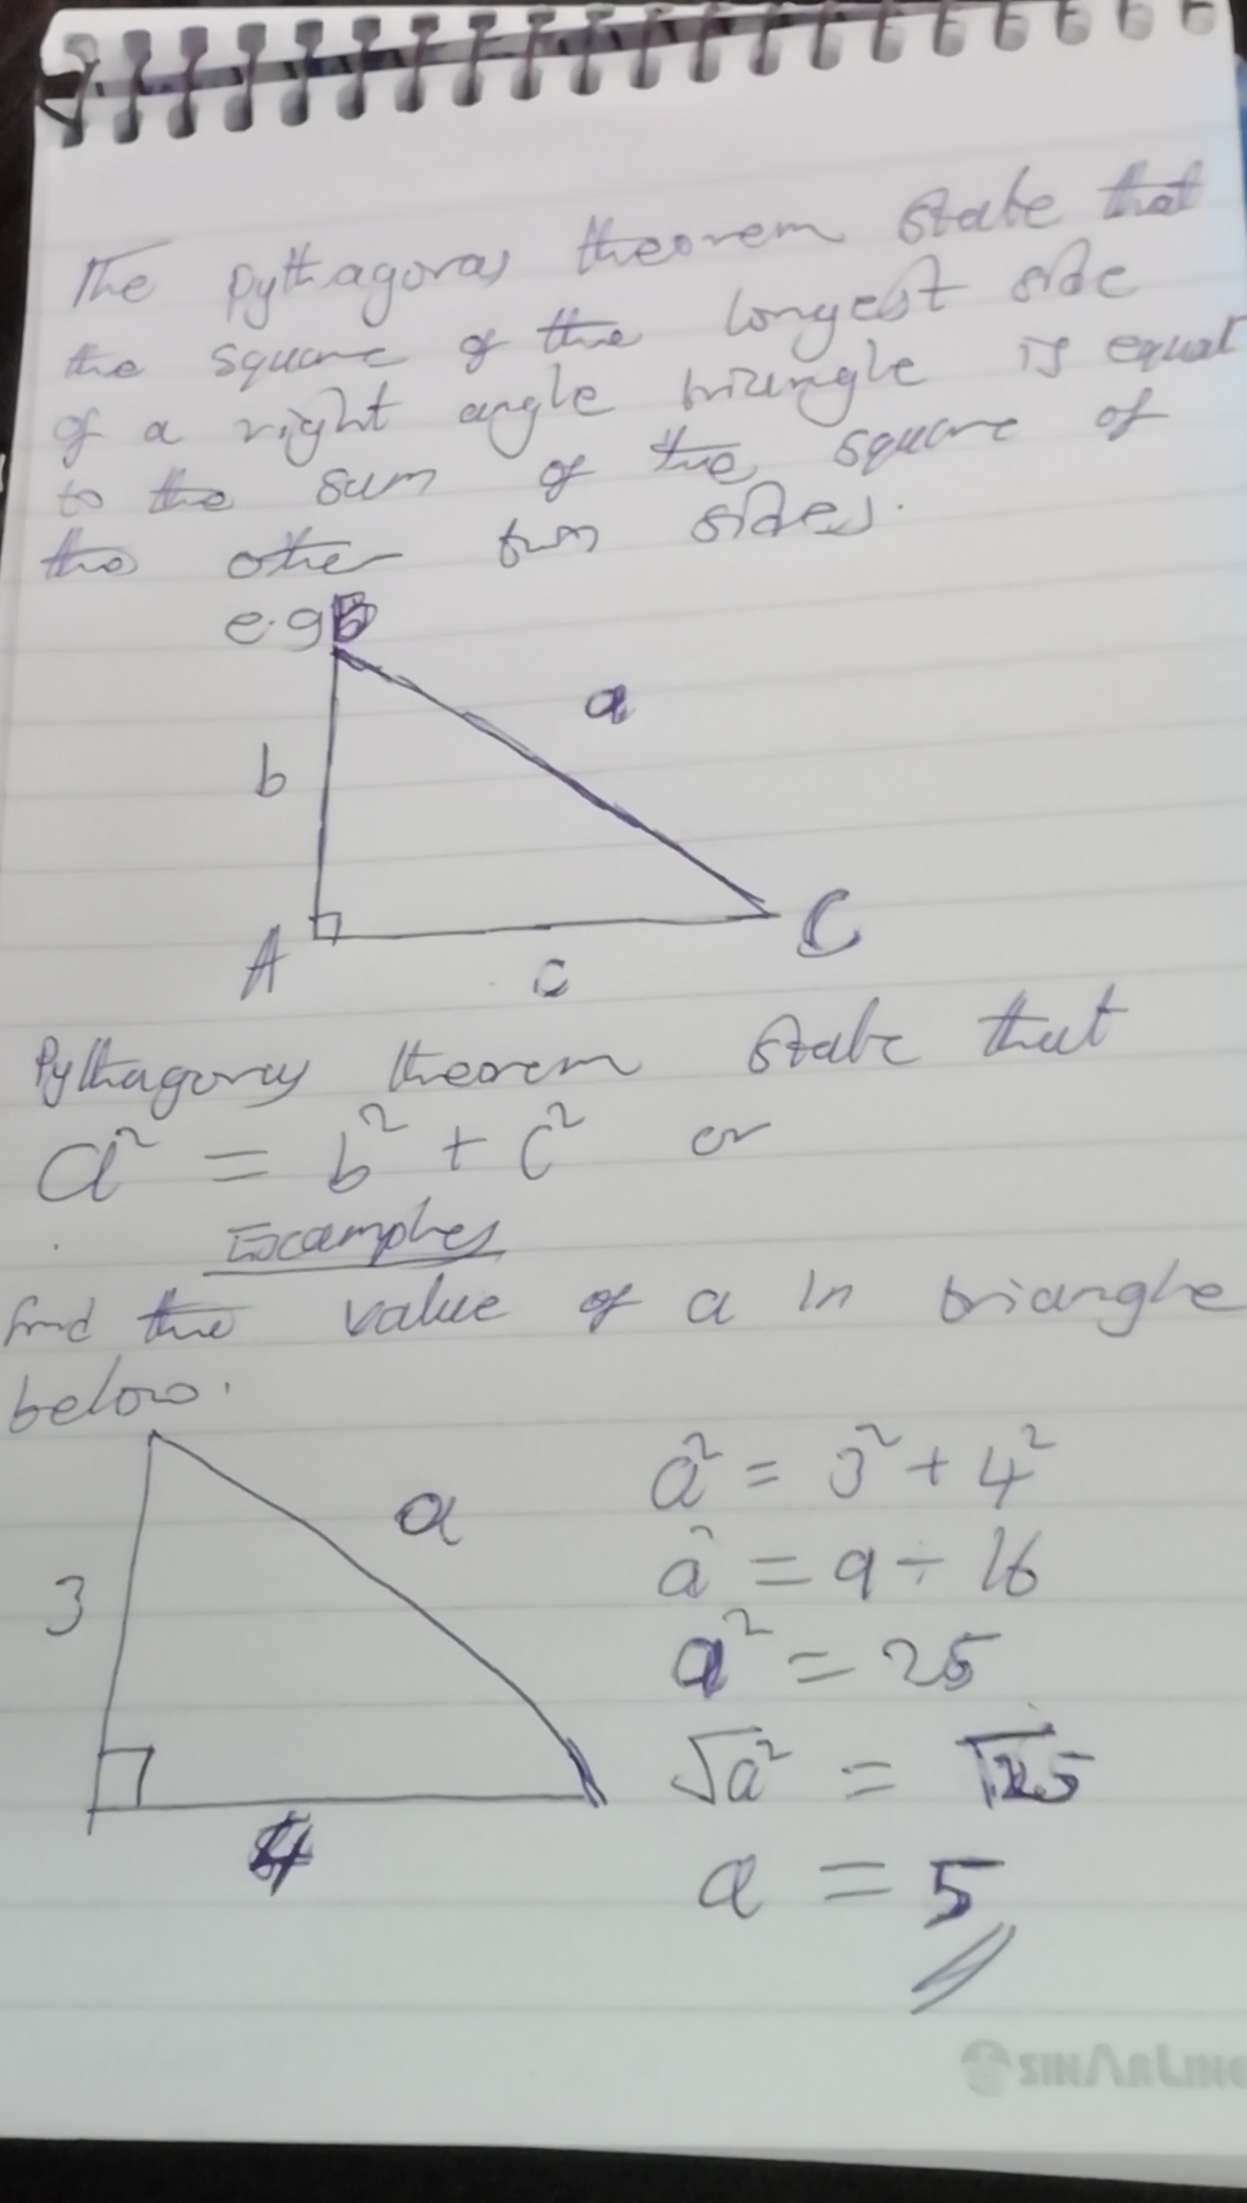 The Pythagoras theorem state that
the square of the longest side
of a right angle triangle is equal
to the sum of the square of
the other two sides.
e.g B
a
b
A
C
c
Pythagoras theorem state that
a² = b² + c² or
Examples
find the value of a in triangle
below.
a
3
4
a² = 3² + 4²
a² = 9 + 16
a² = 25
√a² = √25
a = 5
SINARLINE